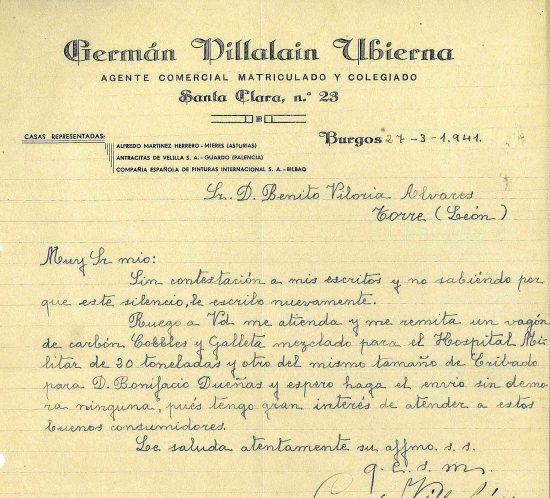 Germán Villalain Ubierna
AGENTE COMERCIAL MATRICULADO Y COLEGIADO
Santa Clara, n.º 23
CASAS REPRESENTADAS:
ALFREDO MARTINEZ HERRERO - MIERES (ASTURIAS)
ANTRACITAS DE VELILLA S. A. - GUARDO (PALENCIA)
COMPAÑIA ESPAÑOLA DE PINTURAS INTERNACIONAL S. A. - BILBAO
Burgos 27-3-1.941.
Sr. D. Benito Viloria Alvares
Torre (León)
Muy Sr mio:
Sin contestación a mis escritos y no sabiendo por
que este silencio, le escribo nuevamente.
Ruego a Vd me atienda y me remita un vagón
de carbón Cobbles y Galleta mezclado para el Hospital Mi-
litar de 20 toneladas y otro del mismo tamaño de Cribado
para D. Bonifacio Dueñas y espero haga el envio sin demo-
ra ninguna, pués tengo gran interés de atender a estos
buenos consumidores.
Le saluda atentamente su affmo. s. s.
q. e. s. m.